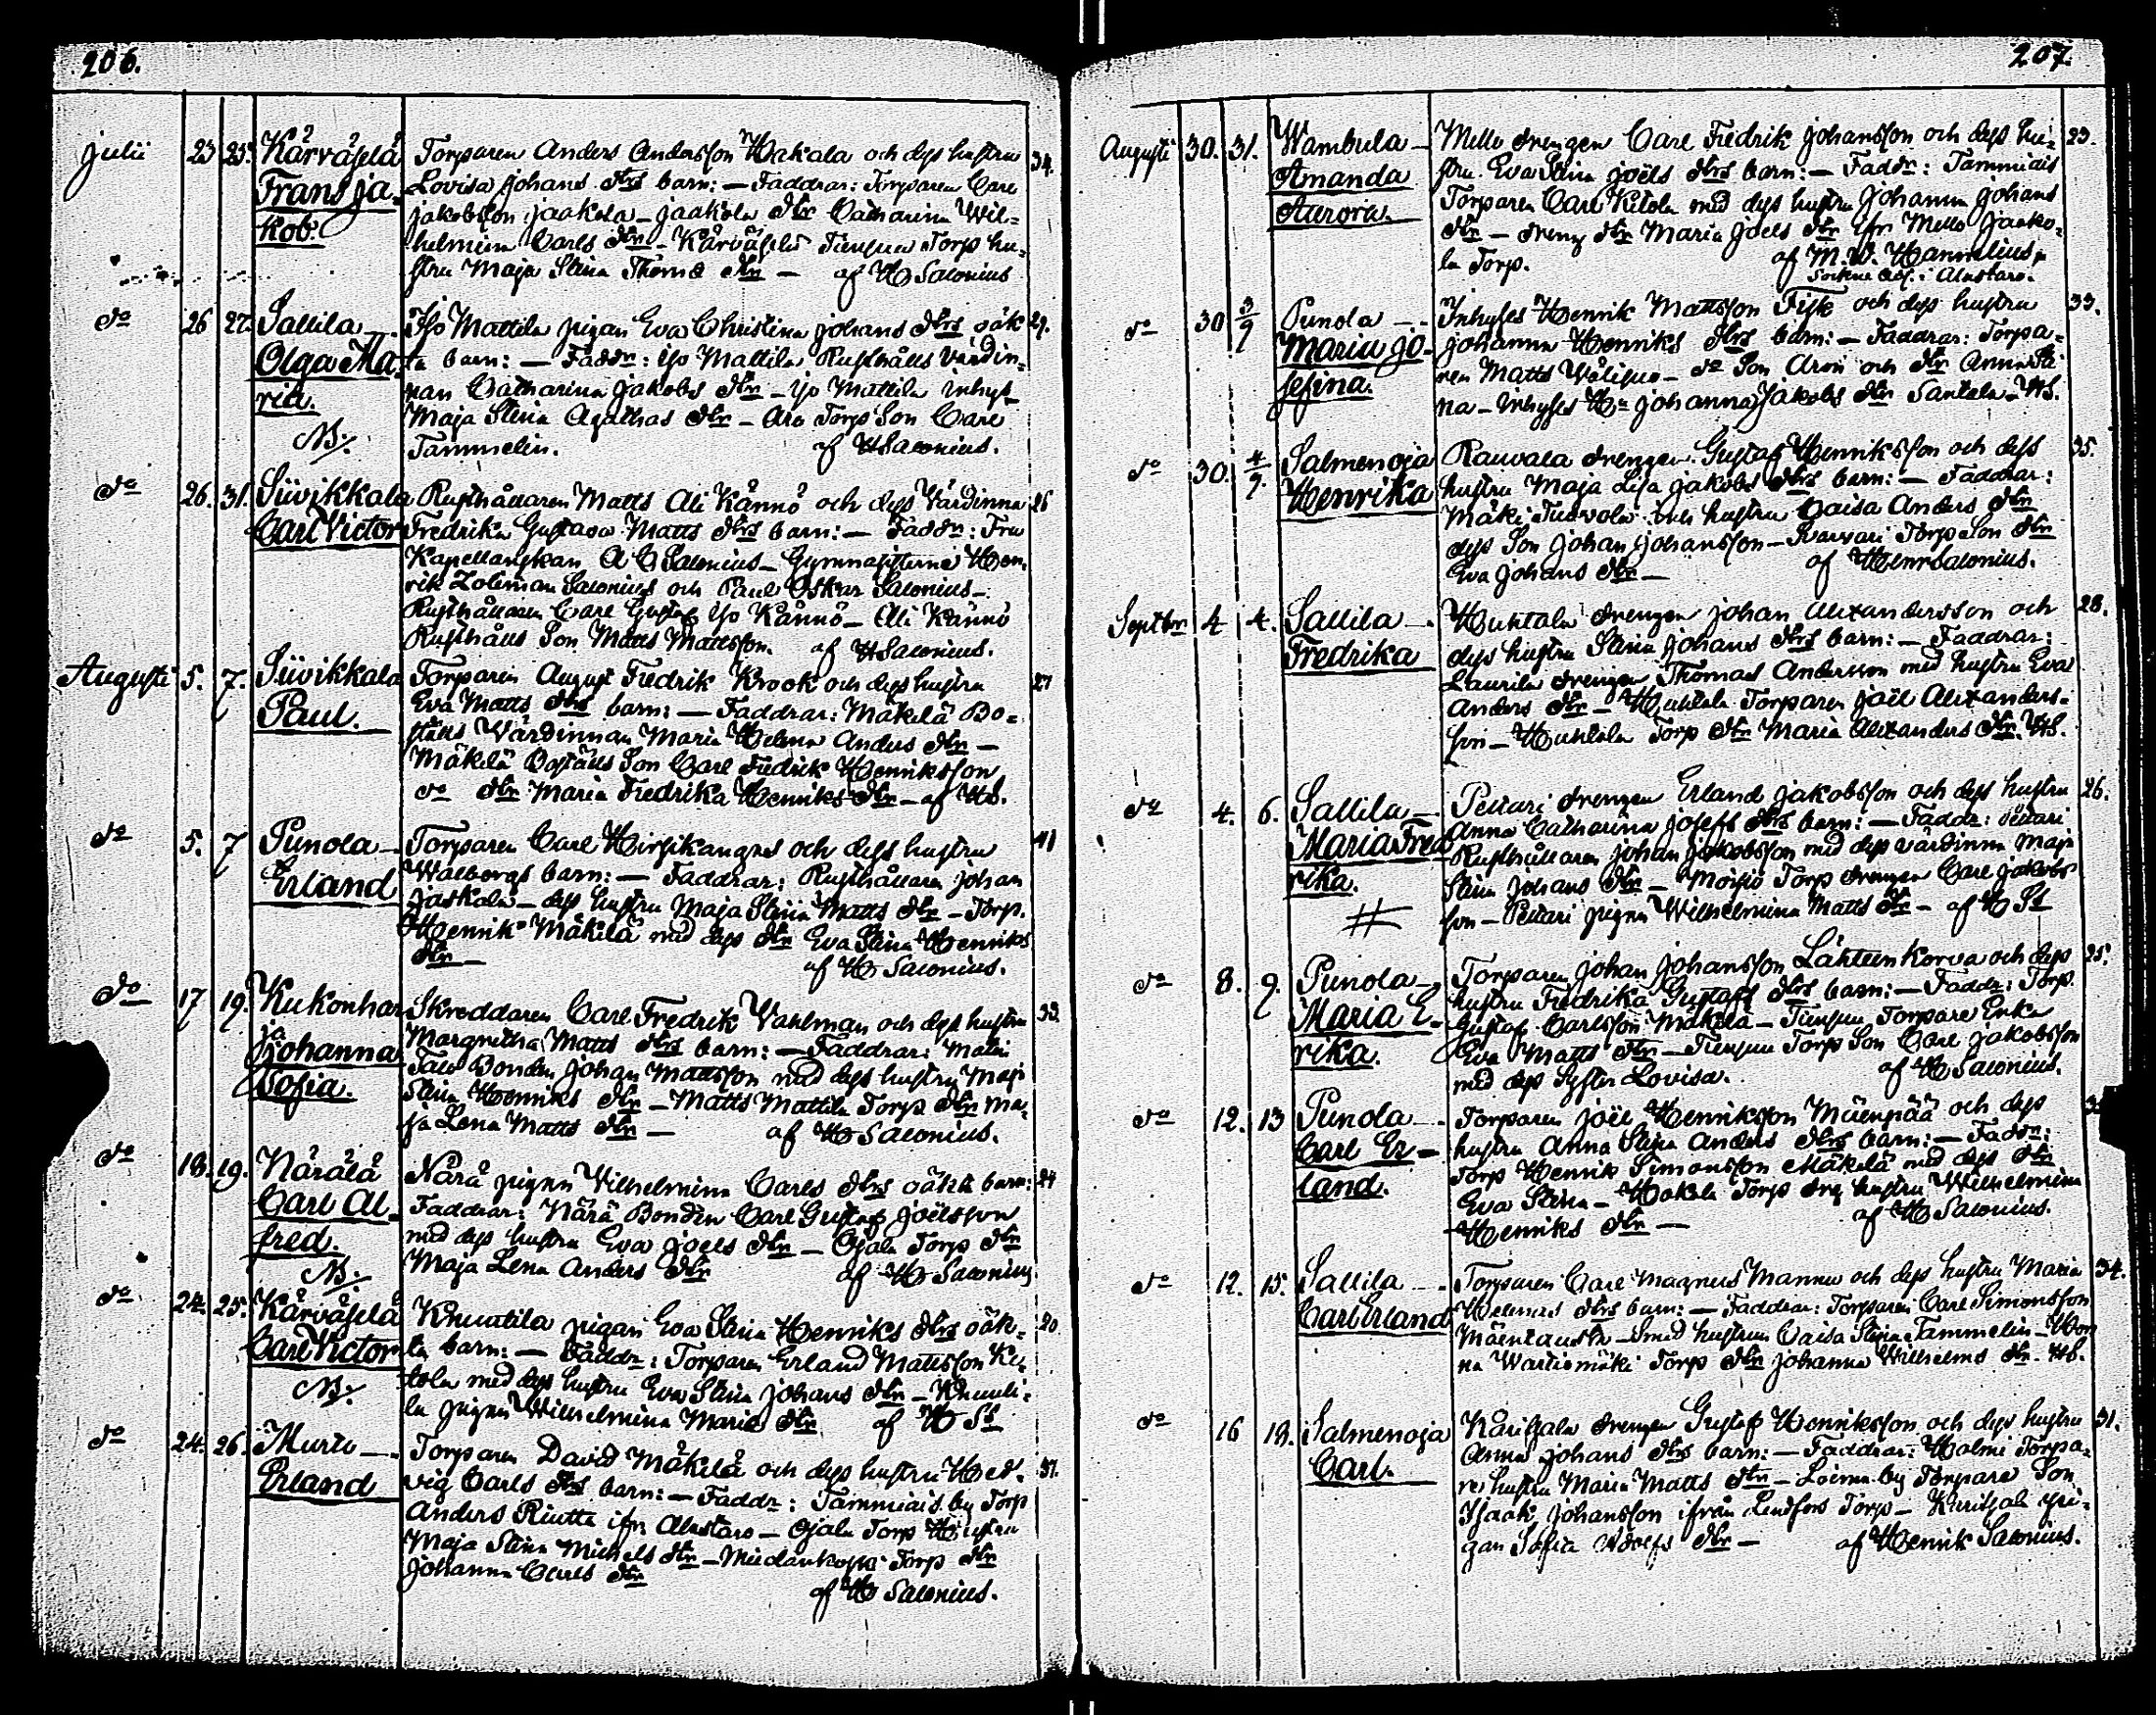 206.
Julii 23 25. Kärväselä Torparen Anders Andersson Hakala och dess hustru 34.
Frans Ja- Lovisa Johans dtrs barn: — Faddrar: Torparen Carl
kob. Jakobsson Jaakola — Jaakola dtr Catharina Wil-
helmina Carls dtr — Kärväselä Torp hu-
stru Maja Stina Thoms dtr — af H Salonius
do 26 27. Sallila — Yso Mattila pigan Eva Christina Johans dtrs oäk- 29.
Olga Ma- ta barn: — Faddr: Yso Mattila Rusthålls Värdin-
ria. nan Catharina Jakobs dtr — Yso Mattila inhys
NB: Maja Stina Agathas dtr — Torp Son Carl
Tammelin. af H Salonius.
do 26. 31. Siivikkala Rusthållaren Matts Ali Kännö och dess Värdinna 26
Carl Victor Fredrika Gustava Matts dtrs barn: — Faddr: Fru
Kapellanskan A C Salonius — Gymnasisterne Hen-
rik Zoliman Salonius och Paul Oskar Salonius —
Rusthållaren Carl Gustaf Yso Kännö — Ali Kännö
Rusthålls Son Matts Mattsson. af H Salonius.
Augusti 5. 7. Siivikkala Torparen August Fredrik Krook och dess hustru 27
Paul. Eva Matts dtrs barn: — Faddrar: Mäkelä Bo-
ställs Värdinnan Maria Helena Anders dtr —
Mäkelä Boställs Son Carl Fredrik Henriksson
do dtr Maria Fredrika Henriks dtr — af HS.
do 5. 7 Punola — Torparen Carl Hirsikangas och dess hustru 41
Erland Walborgs barn: — Faddrar: Rusthållaren Johan
Jaskala — dess hustru Maja Stina Matts dtr — Torp.
Henrik Mäkilä med dess dtr Eva Stina Henriks
dtr — af H Salonius.
do 17 19. Kukonhar- Skreddaren Carl Fredrik Vahlman och dess hustru 33.
ja Margretha Matts dtrs barn: — Faddrar: Matti
Johanna Bonden Johan Mattsson med dess hustru Maja
Sofia. Stina Henriks dtr — Matts Mattila Torp dtr Ma-
ja Lena Matts dtr — af H Salonius.
do 18. 19. Närälä Närä pigan Wilhelmina Carls dtrs oäkta barn: 24
Carl Al- Faddrar: Närä Bonden Carl Gustaf Joelsson
fred. med dess hustru Eva Joels dtr — Ojala Torp dtr
NB: Maja Lena Anders dtr af H Salonius
do 24. 25. Kärväselä Knuutila pigan Eva Stina Henriks dtrs oäk- 20
Carl Victor ta barn: — Faddr: Torparen Erland Mattsson Ki-
NB: tola med dess hustru Eva Stina Johans dtr — Knuuti-
la pigan Wilhelmina Maria dtr af H Ss
do 24. 26. Murto — Torparen David Mäkilä och dess hustru Hed- 37.
Erland vig Carls dtrs barn: — Faddr: Tammiais by Torp
Anders Riutta ifrn Alastaro — Ojala Torp Hustru
Maja Stina Michels dtr — Torp dtr
Johanna Carls dtr
af H Salonius.
207.
Augusti 30. 31. Wambula — Mello drengen Carl Fredrik Johansson och dess hu- 23.
Amanda stru Eva Stina Joëls dtrs barn: — Faddr: Tammiais
Aurora. Torparen Carl Kitola med dess hustru Johanna Johans
dtr — dreng dtr Maria Joels dtr ifrn Mello Jaako-
la Torp. af M. W. Hammelius,
Sockne Adj. i Alastaro.
do 30 3/9 Punola — Inhyses Henrik Mattsson Fisk och dess hustru 33.
Maria Jo- Johanna Henriks dtrs barn: — Faddrar: Torpa-
sefina. ren Matts — do Son Aron och dtr Anna Sti-
na — Inhyses Johanna Jakobs dtr Santala — HS.
do 30. 4/9. Salmenoja Rauvala drengen Gustaf Henriksson och dess 35.
Henrika hustru Maja Lisa Jakobs dtrs barn: — Faddrar:
Mäki Tuovola hustru Caisa Anders dtr
dess Son Johan Johansson — Torp Son dtr
Eva Johans dtr — af Henr Salonius.
Septbr 4 4. Sallila — Huhtala drengen Johan Alexandersson och 28.
Fredrika dess hustru Stina Johans dtrs barn: — Faddrar:
Laurila drengen Thomas Andersson med hustru Eva
Anders dtr — Huhtala Torparen Joël Alexanders-
son — Huhtala Torp dtr Maria Alexanders dtr. HS.
do 4. 6. Sallila — Peitari drengen Erland Jakobsson och dess hustru 26.
Maria Fred- Anna Catharina Josefs dtrs barn: — Faddr: Peitari
rika. Rusthållaren Johan Jakobsson med dess värdinna Maja
# Stina Johans dtr — Moisio Torp drengen Carl Jakobs-
son — Peitari pigan Wilhelmina Matts dtr — af H Ss
do 8. 9. Punola — Torparen Johan Johansson Lähteenkorva och dess 25.
Maria E- hustru Fredrika Gustafs dtrs barn: — Faddr: Torp.
rika. Gustaf Carlsson Mäkilä — Torpare Enka
Eva Matts dtr — Torp Son Carl Jakobsson
med dess Syster Lovisa. af H Salonius.
do 12. 13 Punola — Torparen Joël Henriksson Mäenpää och dess
Carl Er- hustru Anna Stina Anders dtrs barn: — Faddr:
land. Torp Henrik Simonsson Mäkelä med dess dtr
Eva Stina — Hakala Torp drg hustru Wilhelmina
Henriks dtr — af H Salonius.
do 12. 15. Sallila — Torparen Carl Magnus Mannu och dess hustru Maria 34.
Carl Erland Helenas dtrs barn: — Faddrar: Torparen Carl Simonsson
Mäentausta — Smed hustrun Caisa Stina Tammelin — Hon-
na Torp dtr Johanna Wilhelms dtr. HS.
do 16 18. Salmenoja Karitzala drengen Gustaf Henriksson och dess hustru 31.
Carl. Anna Johans dtrs barn: — Faddrar: Holmi Torpa-
re hustru Maria Matts dtr — Loima by Torpare Son
Isaak Johansson ifrån Lindfors Torp — pi-
gan Sofia Adolfs dtr — af Henrik Salonius.